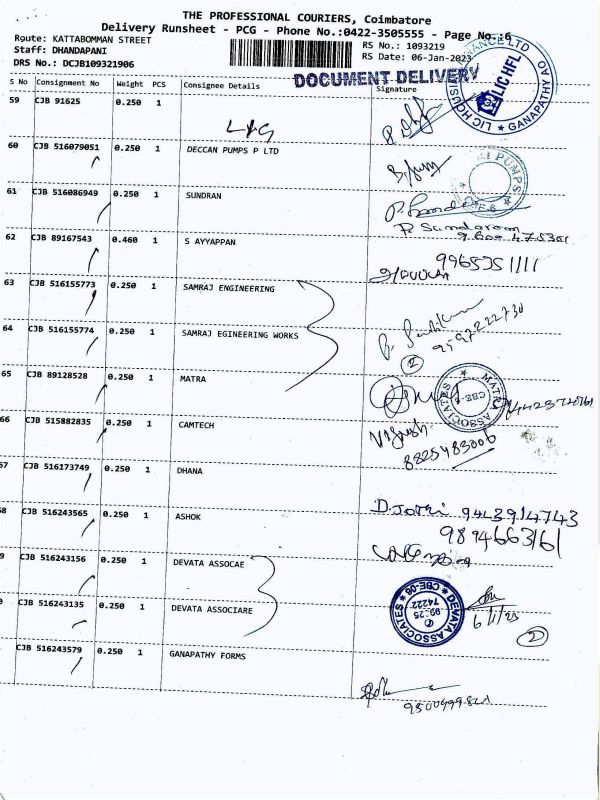 THE PROFESSIONAL COURIERS, Coimbatore
Delivery Runsheet - PCG - Phone No.:0422-3505555 - Page No.:6
Route: KATTABOMMAN STREET
Staff: DHANDAPANI
DRS No.: DCJB109321906
RS No.: 1093219
RS Date: 06-Jan-2023
DOCUMENT DELIVERY
S No Consignment No Weight PCS Consignee Details Signature
59 CJB 91625 0.250 1
LIC HFL
GANAPATHY
60 CJB 516079051 0.250 1 DECCAN PUMPS P LTD
PUMPS
61 CJB 516086949 0.250 1 SUNDRAN
P Sundaram
62 CJB 89167543 0.460 1 S AYYAPPAN
63 CJB 516155773 0.250 1 SAMRAJ ENGINEERING
64 CJB 516155774 0.250 1 SAMRAJ EGINEERING WORKS
9597222730
2
65 CJB 89128528 0.250 1 MATRA
MATRA ASSOCIATES
CBE-6
66 CJB 515882835 0.250 1 CAMTECH
8825483006
67 CJB 516173749 0.250 1 DHANA
68 CJB 516243565 0.250 1 ASHOK
D.Jothi 9443914743
9894663161
9 CJB 516243156 0.250 1 DEVATA ASSOCAE
0 CJB 516243135 0.250 1 DEVATA ASSOCIARE
DEVATA ASSOCIATES
CBE-06
6/1/23
2
CJB 516243579 0.250 1 GANAPATHY FORMS